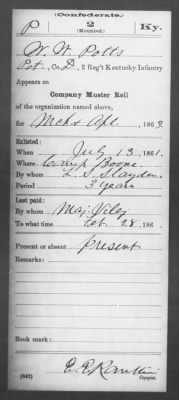 (Confederate.)
P 2 Ky.
(Mounted.)
W. W. Potts
Pvt., Co. D, 2 Reg't Kentucky Infantry
Appears on
Company Muster Roll
of the organization named above,
for Mch & Apl, 1863.
Enlisted:
When July 13, 1861.
Where Camp Boone
By whom L. S. Slayden
Period 3 years
Last paid:
By whom Maj. Viley
To what time Feb. 28, 186
Present or absent Present
Remarks:
Book mark:
E. E. Rankin
(642) Copyist.